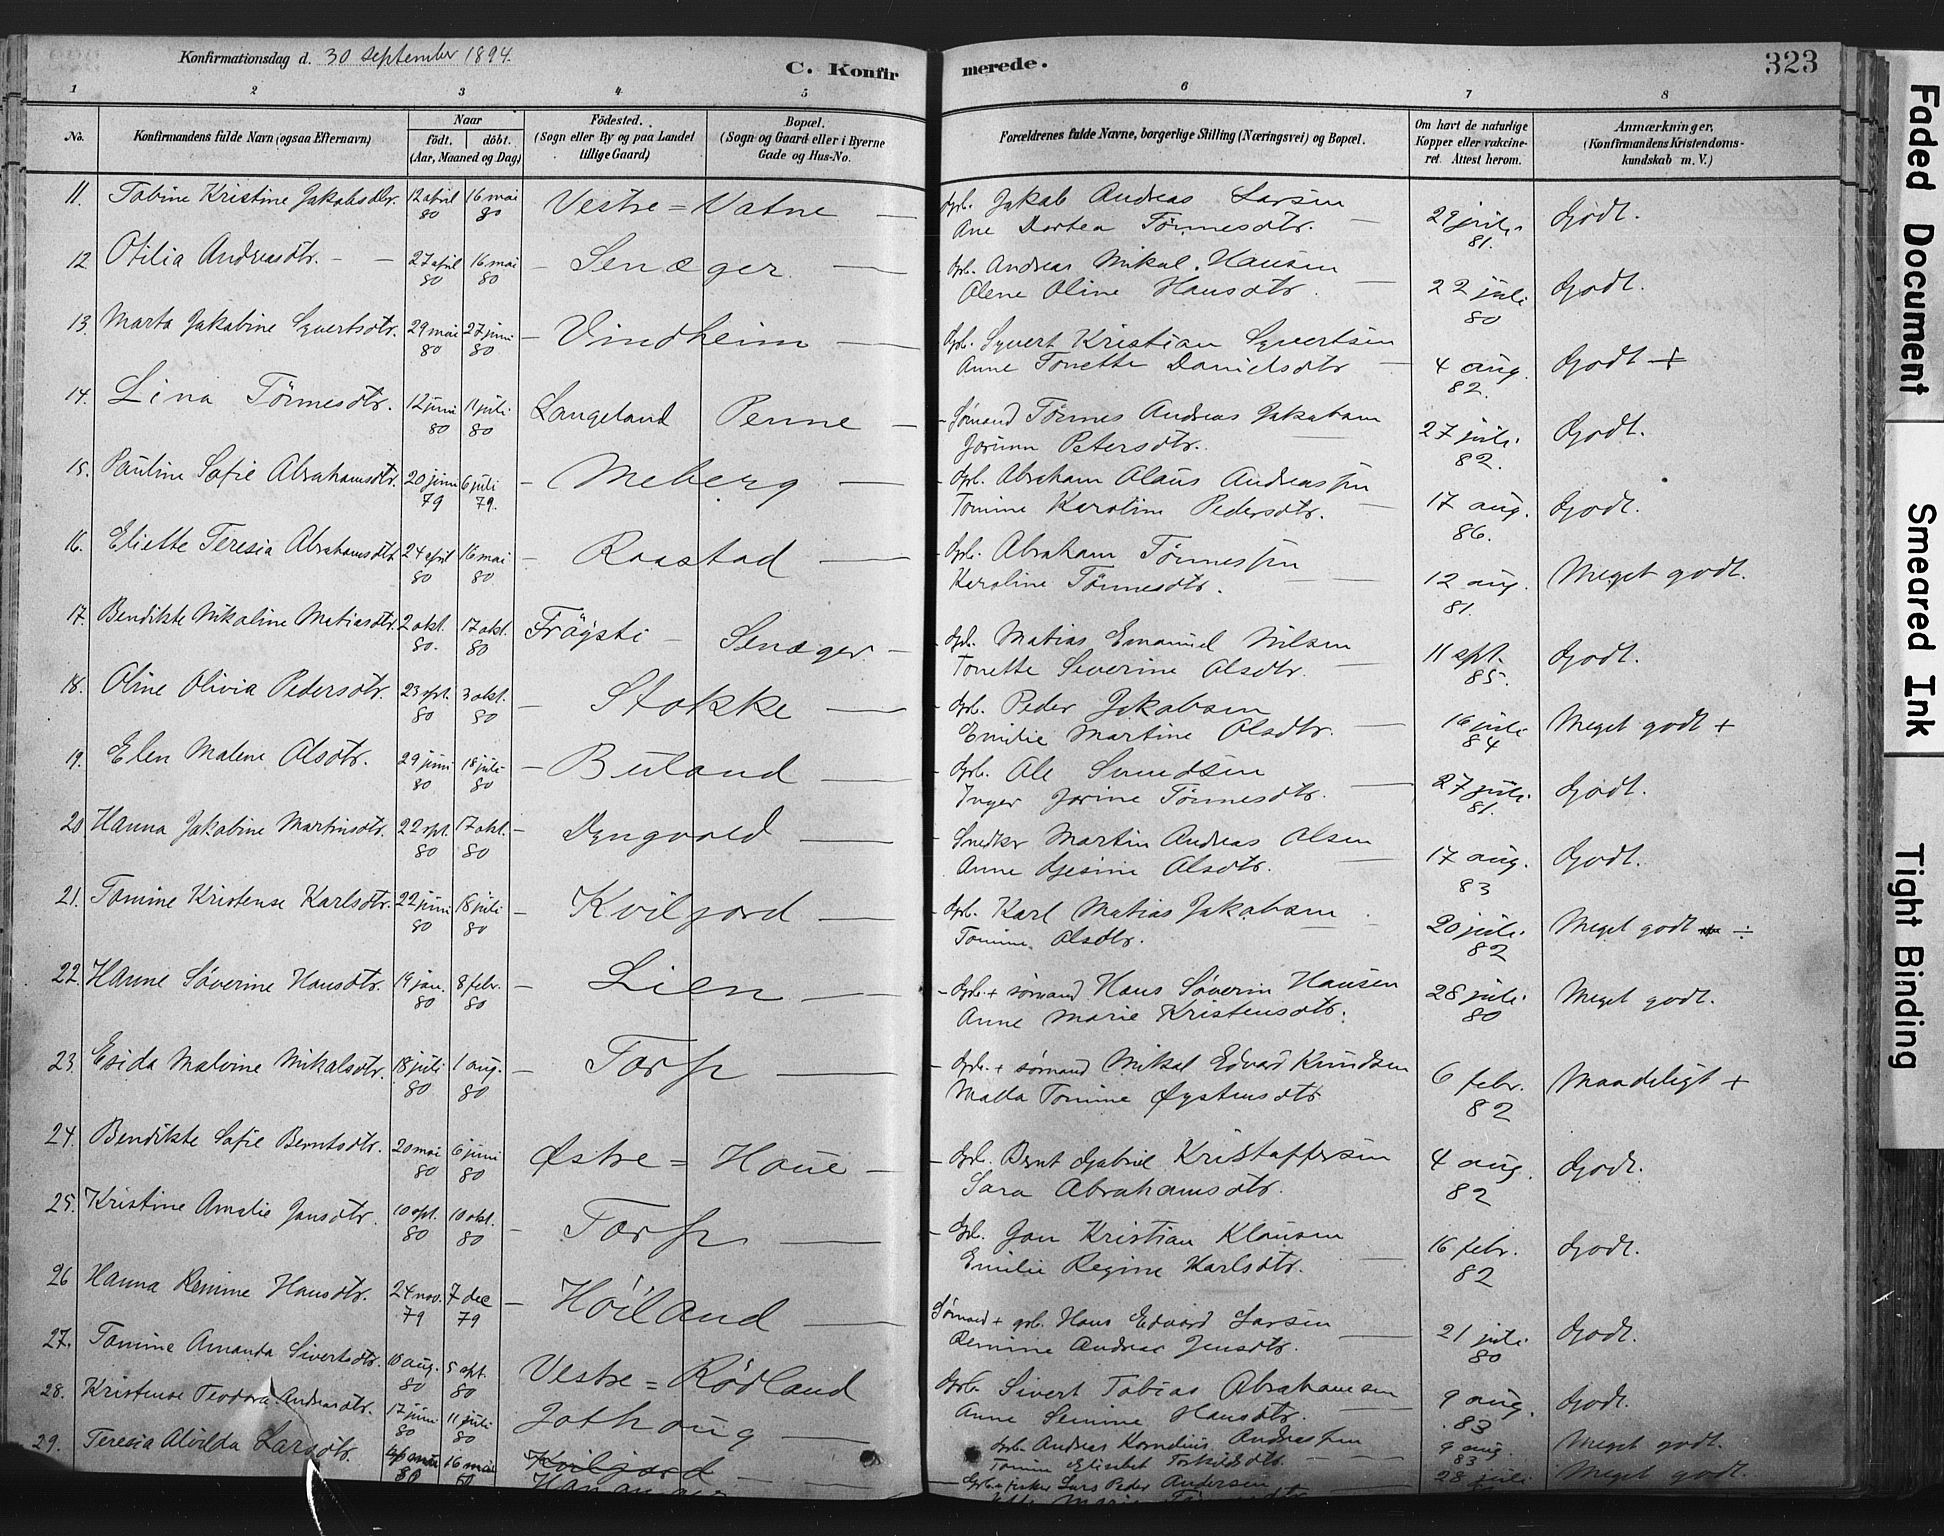 Konfirmationsdag d. 30 september 1894.
C. Konfirmerede.
323
1 2 3 4 5 6 7 8
No.
Konfirmandens fulde Navn (ogsaa Efternavn)
Naar
født. døbt.
(Aar, Maaned og Dag)
Fødested.
(Sogn eller By og paa Landet
tillige Gaard)
Bopæl.
(Sogn og Gaard eller i Byerne
Gade og Hus-No.
Forældrenes fulde Navne, borgerlige Stilling (Næringsvei) og Bopæl.
Om havt de naturlige
Kopper eller vakcine-
ret. Attest herom.
Anmærkninger,
(Konfirmandens Kristendoms-
kundskab m. V.)
11. Tobine Kristine Jakobsdtr. 12 april 80 16 mai 80 Vestre = Vatne — Gbr. Jakob Andreas Larsen 29 juli 81. Godt.
Ane Dortea Tønnesdtr.
12 Otilia Andreasdtr. - - 27 april 80 16 mai 80 - Senæger. — Gbr. Andreas Mikal Hansen 22 juli 80 Godt.
Olene Oline Hansdtr.
13. Marta Jakobine Syvertsdtr. 29 mai 80 27 juni 80 - Vindheim — Gbr. Syvert Kristian Syvertsen 4 aug. 82. Godt +
Anne Tonette Danielsdtr
14. Lina Tønnesdtr. 12 juni 80 11 juli 80 Langeland Penne - Sømand Tønnes Andreas Jakobsen 27 juli 82. Godt.
Jorunn Petersdtr.
15. Pauline Sofie Abrahamsdtr. 20 juni 79 6 juli 79. - Meberg — Gbr. Abraham Olaus Andreassen 17 aug. 86. Godt.
Tomine Karoline Pedersdtr.
16. Eliette Teresia Abrahamsdtr 24 april 80 16 mai 80 - Raastad — Gbr. Abraham Tønnessen 12 aug. 81. Meget godt.
Karoline Tønnesdtr.
17. Bendikte Nikoline Matiasdtr. 2 okt. 80. 17 okt. 80 Frøysti - Senæger. - Gbr. Matias Emanuel Nilsen 11 spt. 85. Godt.
Tonette Severine Olsdtr.
18. Oline Olivia Pedersdtr. 23 spt. 80 3 okt. 80 - Stokke — Gbr. Peder Jakobsen 16 juli 84 Meget godt +
Emilie Martine Olsdtr.
19. Elen Malene Olsdtr. 29 juni 80 18 juli 80 - Buland — Gbr. Ole Svendsen 27 juli 81. Godt.
Inger Jorine Tønnesdtr.
20 Hanna Jakobine Martinsdtr. 22 spt. 80 17 okt. 80 - Dyngvold — Snedker Martin Andreas Olsen 17 aug. 83 Godt.
Anne Gesine Olsdtr.
21. Tomine Kristense Karlsdtr. 22 juni 80 18 juli 80 - Kviljord — Gbr. Karl Matias Jakobsen 20 juli 82 Meget godt ÷
Tomine Olsdtr.
22. Hanne Søverine Hansdtr. 19 jan. 80 8 febr. 80 - Lien — Gbr. + sømand Hans Søverin Hansen 28 juli 80 Meget godt.
Anne Marie Kristensdtr.
23. Esida Malvine Mikalsdtr. 18 juli 80 1 aug. 80 - Torp — Gbr. + sømand Mikal Edvard Knudsen 6 febr. 82 Maadeligt +
Malla Tomine Øystensdtr
24. Bendikte Sofie Berntsdtr. 20 mai 80 6 juni 80 Østre = Haue - Gbr. Bernt Gabriel Kristoffersen 4 aug. 82 Godt.
Sara Abrahamsdtr.
25. Kristine Amalie Jansdtr. 10 spt. 80 10 okt. 80 - Torp — Gbr. Jan Kristian Klausen 16 febr. 82 Godt.
Emilie Regine Karlsdtr.
26 Hanna Remine Hansdtr. 24 nov. 79 7 dec 79 - Høiland — Sømand + gbr. Hans Edvard Larsen 21 juli 80 Godt.
Remine Andrea Jensdtr.
27. Tomine Amanda Sivertsdtr. 10 aug. 80 5 spt. 80 Vestre = Rødland Gbr. Sivert Tobias Abrahamsen 9 aug. 83 Godt.
Anne Semine Hansdtr.
28. Kristense Teodora Andreasdtr. 17 juni 80 11 juli 80 Jothaug — Gbr. Andreas Kornelius Andreassen 9 aug. 83 Meget godt.
Tomine Elisabet Torkildsdtr.
29. Teresia Alvilda Larsdtr. 80 16 mai 80 Kviljord — Gbr. + fisker Lars Peder Andersen 28 juli Meget godt.
Faded Document
Smeared Ink
Tight Binding